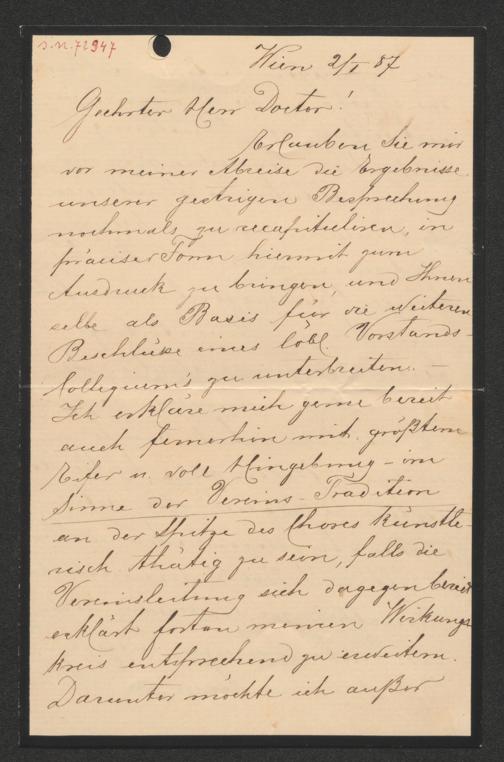 I.N. 72947
Wien 2/I 87
Geehrter Herr Doctor!
Erlauben Sie mir
vor meiner Abreise die Ergebnisse
unserer gestrigen Besprechung
nochmals zu recapituliren, in
präciser Form hiermit zum
Ausdruck zu bringen, und Ihnen
selbe als Basis für die weiteren
Beschlüße eines löbl. Vorstands-
Collegium's zu unterbreiten. –
Ich erkläre mich gerne bereit
auch fernerhin mit größtem
Eifer u. voll Hingebung – im
Sinne der Vereins-Tradition
an der Spitze des Chores künstle-
risch thätig zu sein, falls die
Vereinsleitung sich dagegen bereit
erklärt fortan meinen Wirkungs
kreis entsprechend zu erweitern.
Darunter möchte ich außer